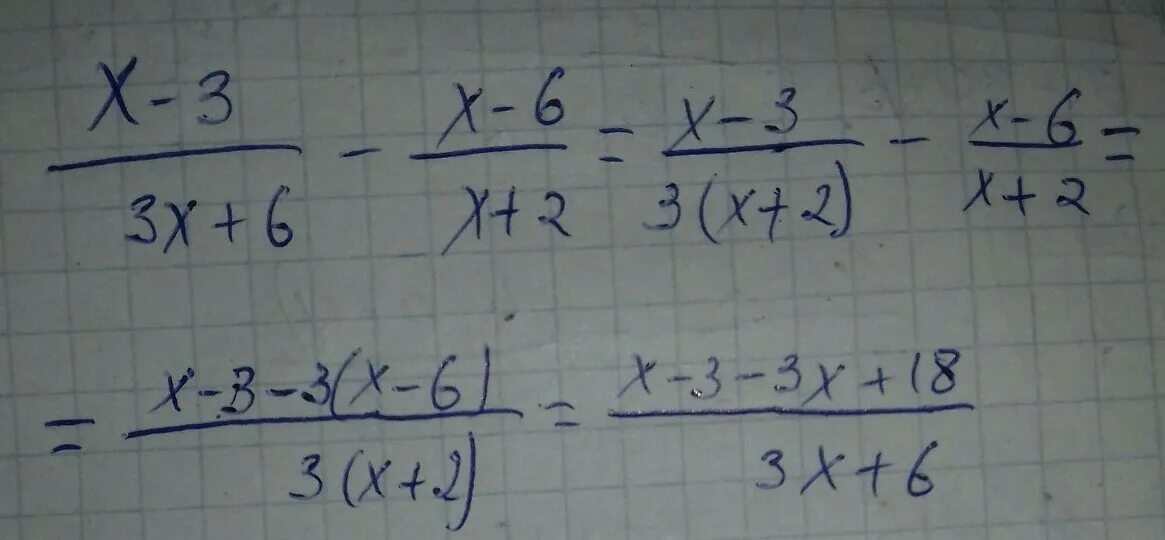 x-3/3x+6 - x-6/x+2 = x-3/3(x+2) - x-6/x+2 =
= x-3-3(x-6)/3(x+2) = x-3-3x+18/3x+6